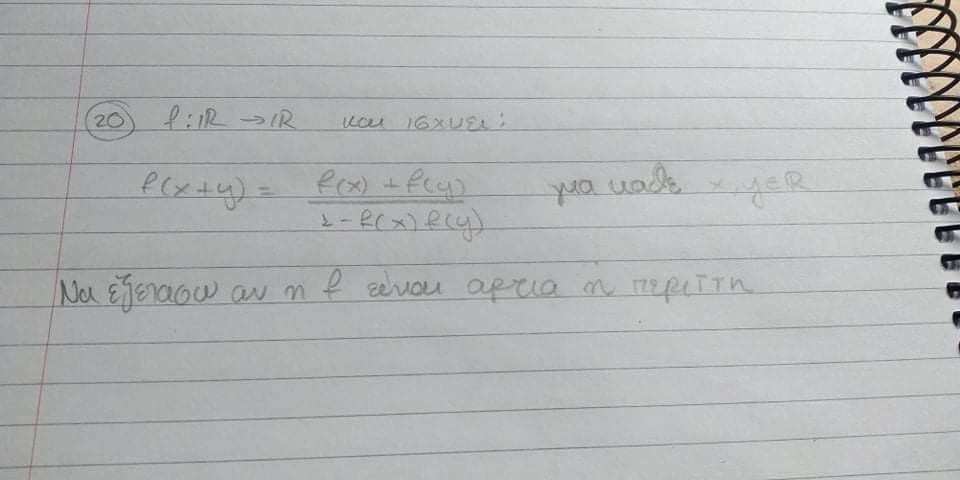 20 f: IR → IR και ισχυει:
f(x+y) = f(x) + f(y) / 1 - f(x) f(y) για καθε x, y ∈ R
Να εξετασω αν η f ειναι αρτια ή περιττη